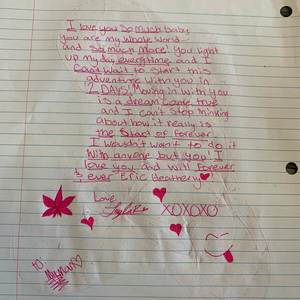 I love you so much baby
you are my whole world
and so much more! You light
up my day everytime and I
can't wait to start this
adventure with you in
2 DAYS! Moving in with you
is a dream come true
and I can't stop thinking
about how it really is
the start of forever
I wouldn't want to do it
with anyone but you! I
love you and will forever
& ever Eric
Love,
XOXOXO
to:
My Man